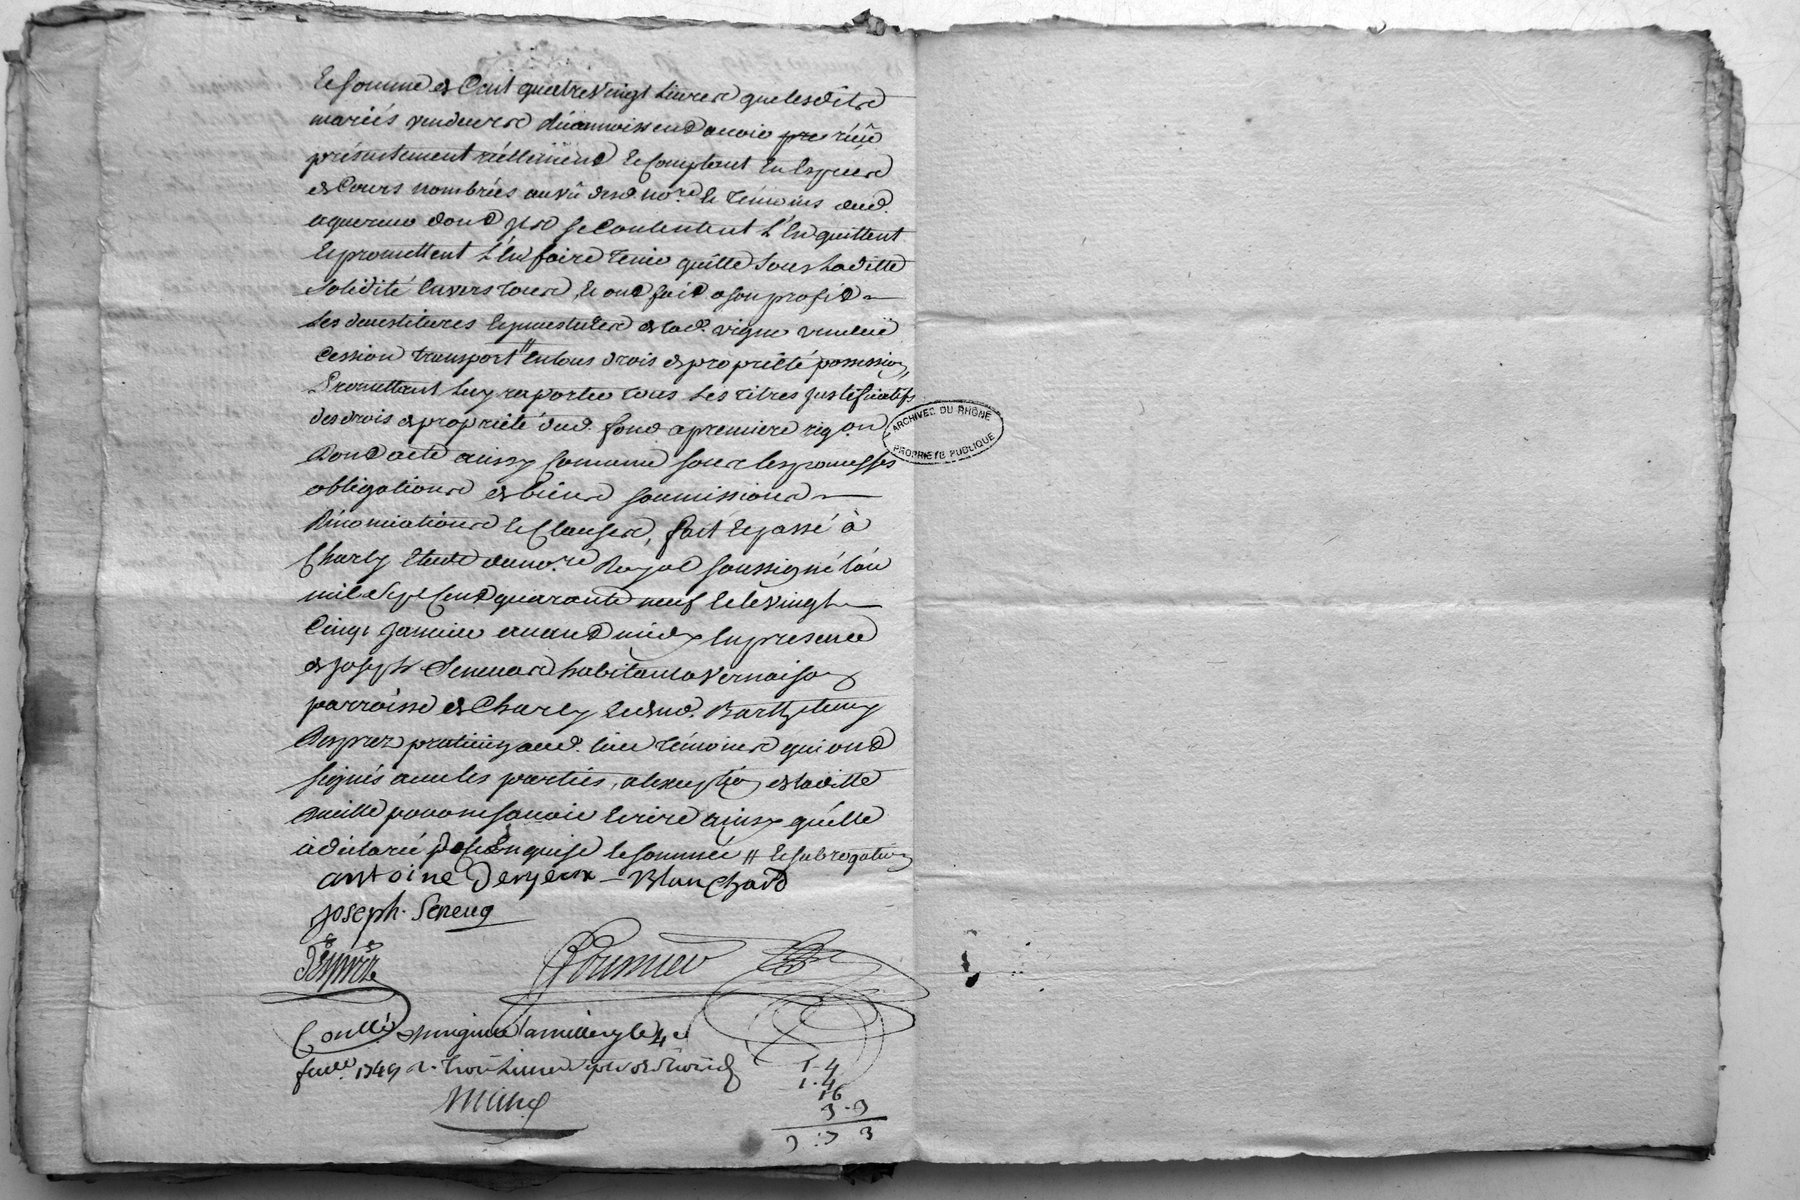 Le somme de Cent quatre Vingt Livres que lesdits
mariés vendeurs reconnoissent avoir pre réçu
présentement réellement Et Comptant En Especes
de Cours nombrées au vû dud. no.re & Témoins dud.
aquereur dont Ils se Contentent L'En quittent
Et promettent L'En faire Tenir quitte sous Laditte
solidité Envers tous, Et ont fait a son profit
Les devestitures Et investitures de lad. vigne vendue
Cession transport // En tous drois de propriété possession,
Promettant Luy raporter tous Les Titres Justificatifs
des drois de propriété dud. fond a premiere req.on
Dont acte ainsy Comme sous les promesses
obligations de biens soumissions
Rénonciations Et Clauses, fait Et passé à
Charly Etude du no.re Royal soussigné L'an
mil Sept Cent quarante neuf Et le Vingt
Cinq Janvier avant midy En presence
de Joseph habitant a Vernaison
parroisse de Charly Et de Barthelemy
Desprez praticien aud. lieu Témoins qui ont
signés avec les parties, a l'exeption de laditte
pour ne savoir Ecrire ainsy qu'elle
a déclaré de ce Enquise Et sommée // Et subrogation
antoine Deryeux Blanchard
Joseph. Seneuq
Desprez
Con.llé a millery le 4e
1749 R. trois Livres
1-4
1-4
16
3-3
3:7 3
ARCHIVES DU RHÔNE
PROPRIÉTÉ PUBLIQUE